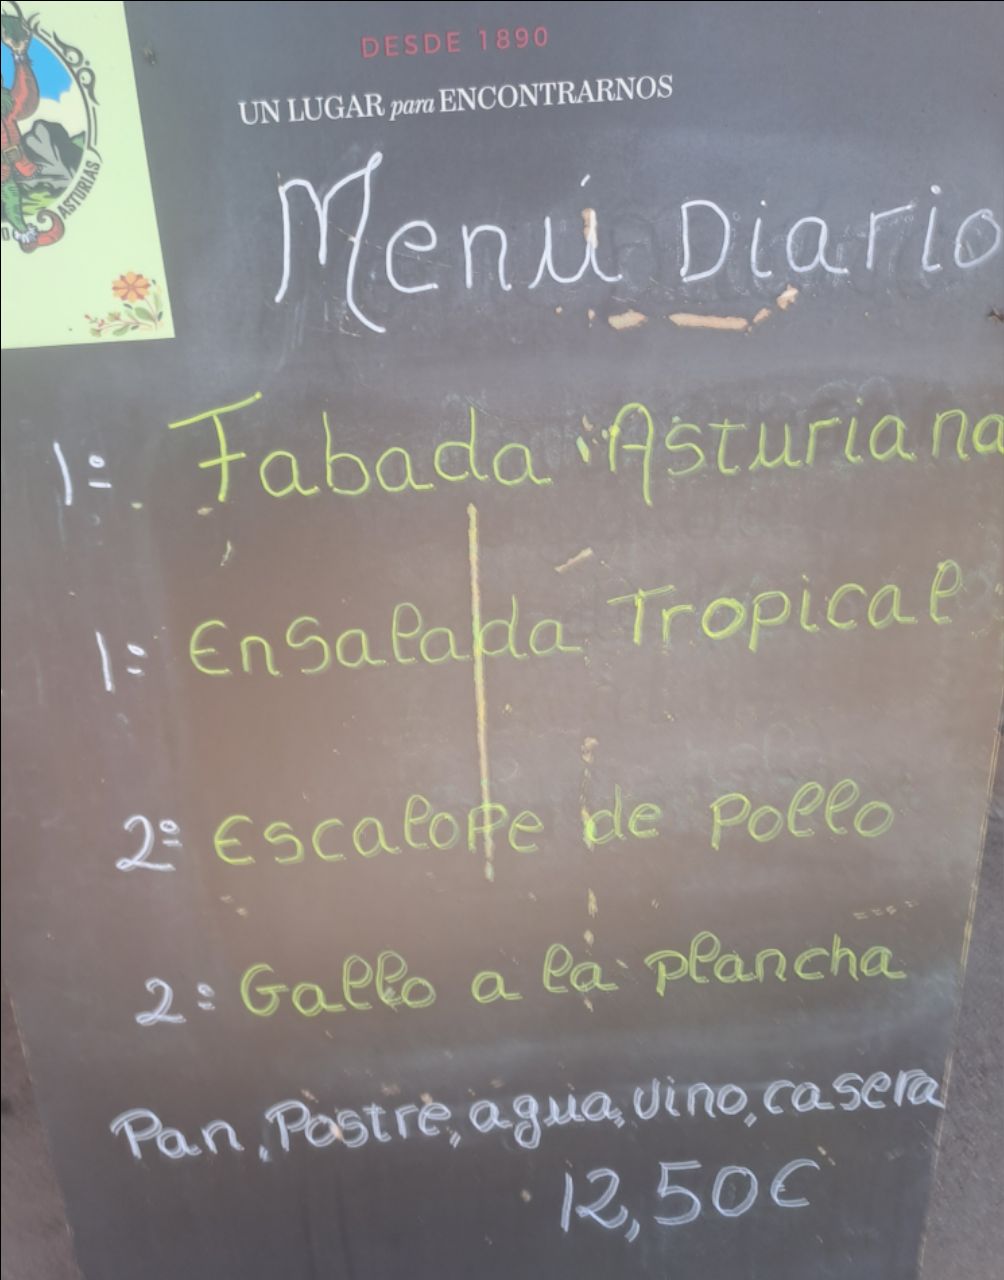 DESDE 1890
UN LUGAR para ENCONTRARNOS
ASTURIAS
Menú Diario
1º Fabada Asturiana
1º Ensalada Tropical
2º Escalope de pollo
2º Gallo a la plancha
Pan, Postre, agua, vino, casera
12,50€